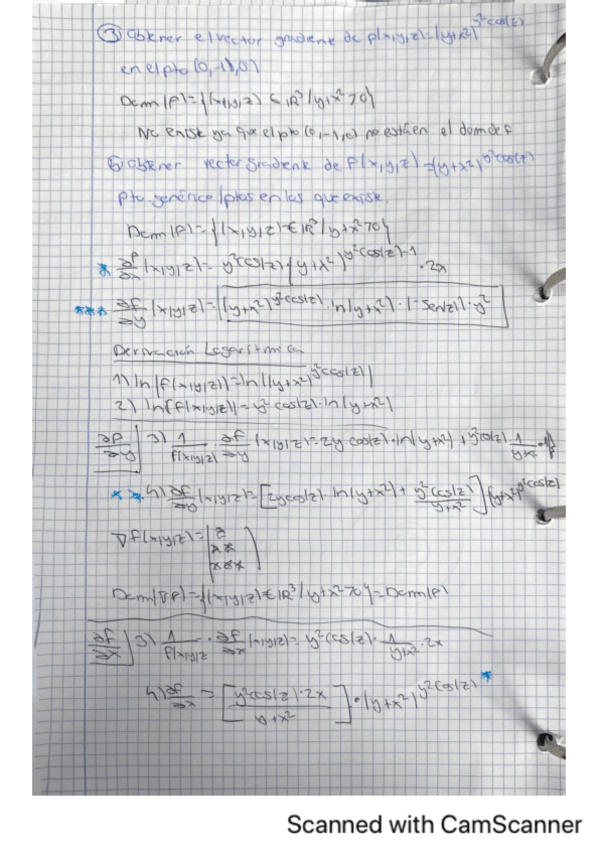 ③ Obtener el vector gradiente de f(x,y,z)=(y+x²)^y²cos(z)
en el pto (0,-1,0)
Dom(f)={(x,y,z) ∈ IR³/y+x²>0}
No existe ya que el pto (0,-1,0) no está en el dom de f
⑤ Obtener vector gradiente de f(x,y,z)=(y+x²)^y²cos(z)
pto genérico/ptos en los que existe.
Dom(f)={(x,y,z)∈IR³/y+x²>0}
* ∂f/∂x (x,y,z)= y²cos(z)·(y+x²)^y²cos(z)-1 ·2x
*** ∂f/∂y (x,y,z)=(y+x²)^y²cos(z)·ln(y+x²)·(-sen(z))·y²
Derivación Logarítmica
1) ln(f(x,y,z))=ln((y+x²)^y²cos(z))
2) ln(f(x,y,z))=y²cos(z)·ln(y+x²)
∂f/∂y 3) 1/f(x,y,z) ∂f/∂y (x,y,z)=2y cos(z)·ln(y+x²)+y²cos(z) 1/y+x² ·1
** 4) ∂f/∂y (x,y,z)=[2ycos(z)·ln(y+x²)+ y²cos(z)/y+x²](y+x²)^y²cos(z)
∇f(x,y,z)=(* ** ***)
Dom(∇f)={(x,y,z)∈IR³/y+x²>0}=Dom(f)
∂f/∂x 3) 1/f(x,y,z · ∂f/∂x (x,y,z)= y²cos(z)· 1/y+x² ·2x
4) ∂f/∂x = [y²cos(z)·2x/y+x²]·(y+x²)^y²cos(z) *
Scanned with CamScanner